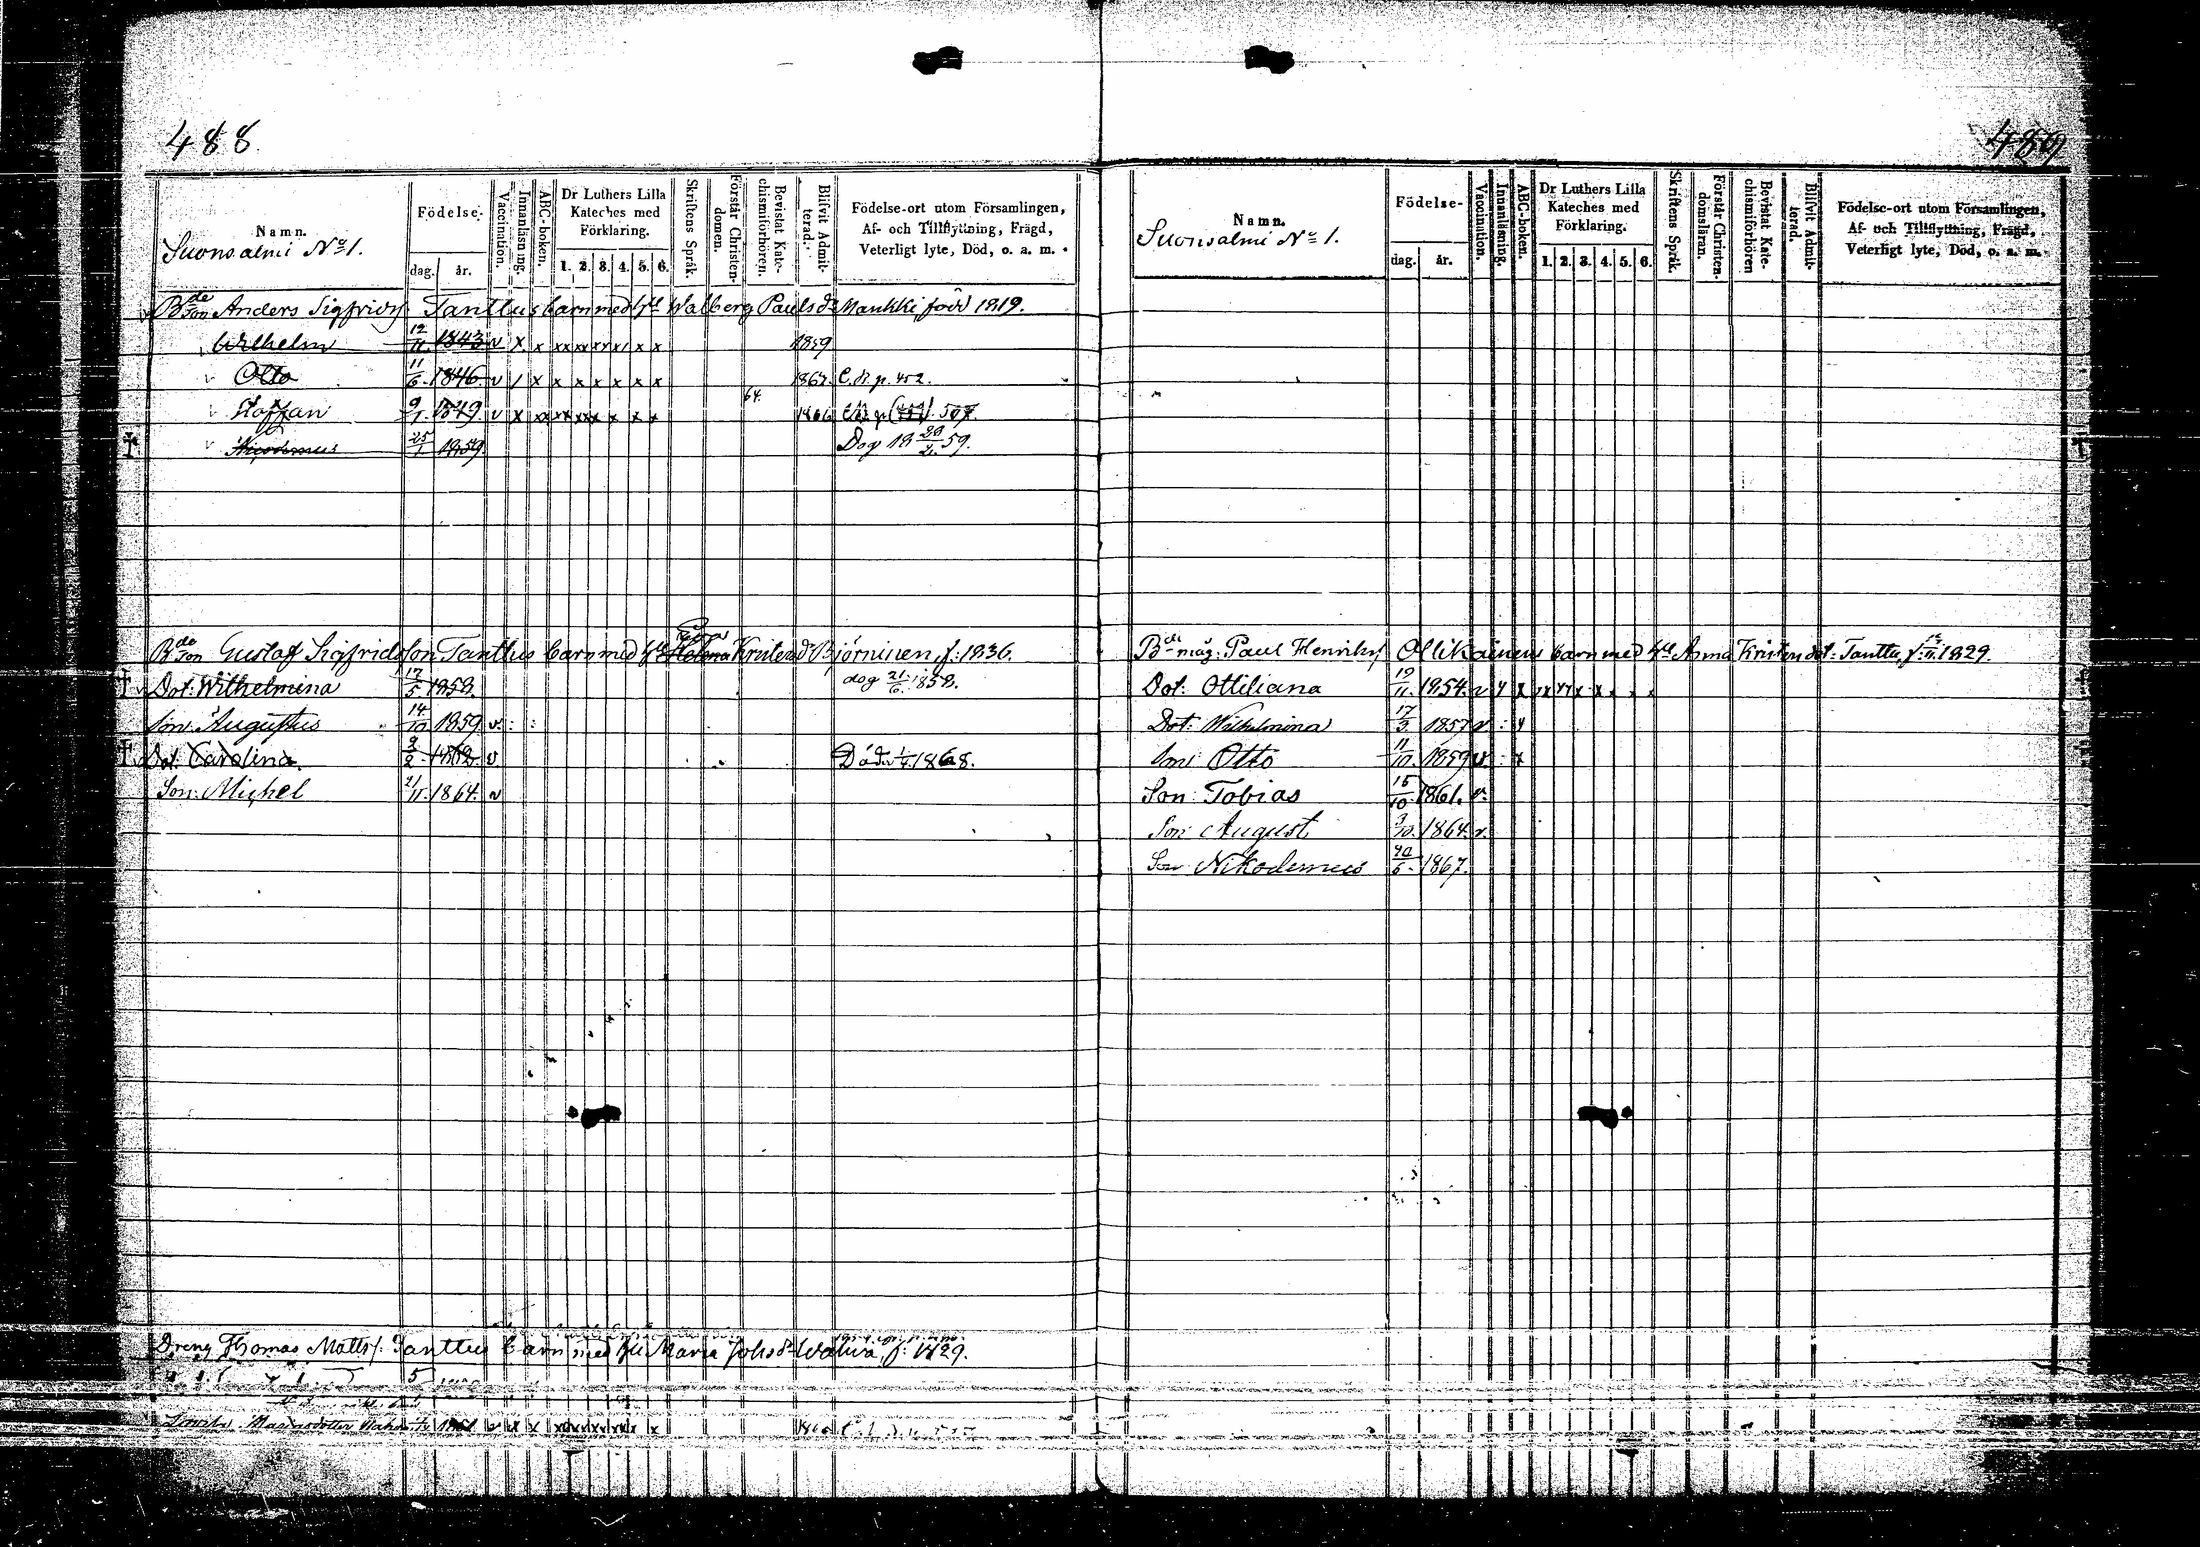 488.
Namn.
Suonsalmi No 1.
Födelse-
dag. år.
Vaccination.
Innanläsning.
ABC-boken.
Dr Luthers Lilla
Kateches med
Förklaring.
1. 2. 3. 4. 5. 6.
Skriftens Språk.
Förstår Christen-
domen.
Bevistat Kate-
chismiförhören.
Blifvit Admit-
terad.
Födelse-ort utom Församlingen,
Af- och Tillflyttning, Frägd,
Veterligt lyte, Död, o. a. m.
Bde Son Anders Sigfrids Tanttus barn med h. Walberg Paulsdr Mankki född 1819.
Wilhelm 12/11 1843 v x x xx xx xx x x x 1859
Otto 11/6 1846 v / x x x x x x x 1867. C.b. p. 452.
Staffan 9/1 1849 v x xx xx xx x x x 64. 1866 507.
Nicodemus 25/1 1859. Dog 18 20/2 59.
Bde Son Gustaf Sigfridsson Tanttus barn med h. Helena Kristersdr Björninen, f. 1836.
Dot: Wilhelmina 12/5 1858. dog 21/6 1858.
Son: Augustus 14/10 1859. v
Dot: Carolina. 1862. v Död 1/4 1868.
Son: Michel 21/11 1864. v
Dreng Thomas Matts: Tanttus barn med h. Maria Johsdr f: 1829.
489
Namn.
Suonsalmi No 1.
Födelse-
dag. år.
Vaccination.
Innanläsning.
ABC-boken.
Dr Luthers Lilla
Kateches med
Förklaring.
1. 2. 3. 4. 5. 6.
Skriftens Språk.
Förstår Christen-
domsläran.
Bevistat Kate-
chismiförhören
Blifvit Admit-
terad.
Födelse-ort utom Församlingen,
Af- och Tillflyttning, Frägd,
Veterligt lyte, Död, o. a. m.
Bde måg. Paul Henriks Ollikainens barn med h. Anna Kristersdot: Tanttu, f: 1829.
Dot: Ottiliana 19/11 1854. v
Dot: Wilhelmina 17/3 1857 v
Son: Otto 11/10 1859 v
Son: Tobias 15/10 1861. v.
Son: August 3/10 1864. v.
Son Nikodemus 20/6 1867.